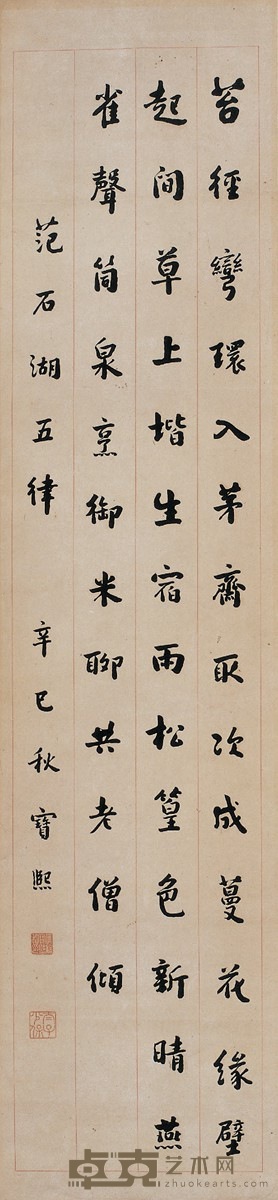 苔徑彎環入茅齋取次成蔓花緣壁
起間草上堦生宿雨松篁色新晴燕
雀聲筒泉烹御米聊共老僧傾
范石湖五律 辛巳秋寶熙
卓克艺术网
zhuokearts.com